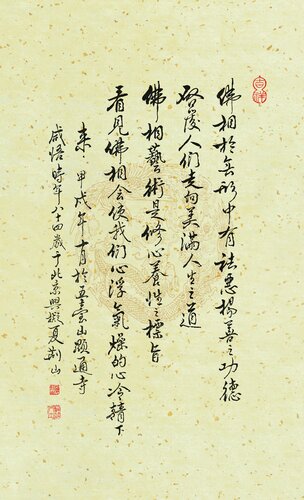 佛相於無形中有祛惡揚善之功德
啓發人们走向美满人生之道
佛相藝術是修心養性之標旨
看見佛相会使我们心浮氣燥的心冷静下
来·甲戌年十月於五臺山顯通寺
感悟時年八十四歲于北京興擬夏荆山